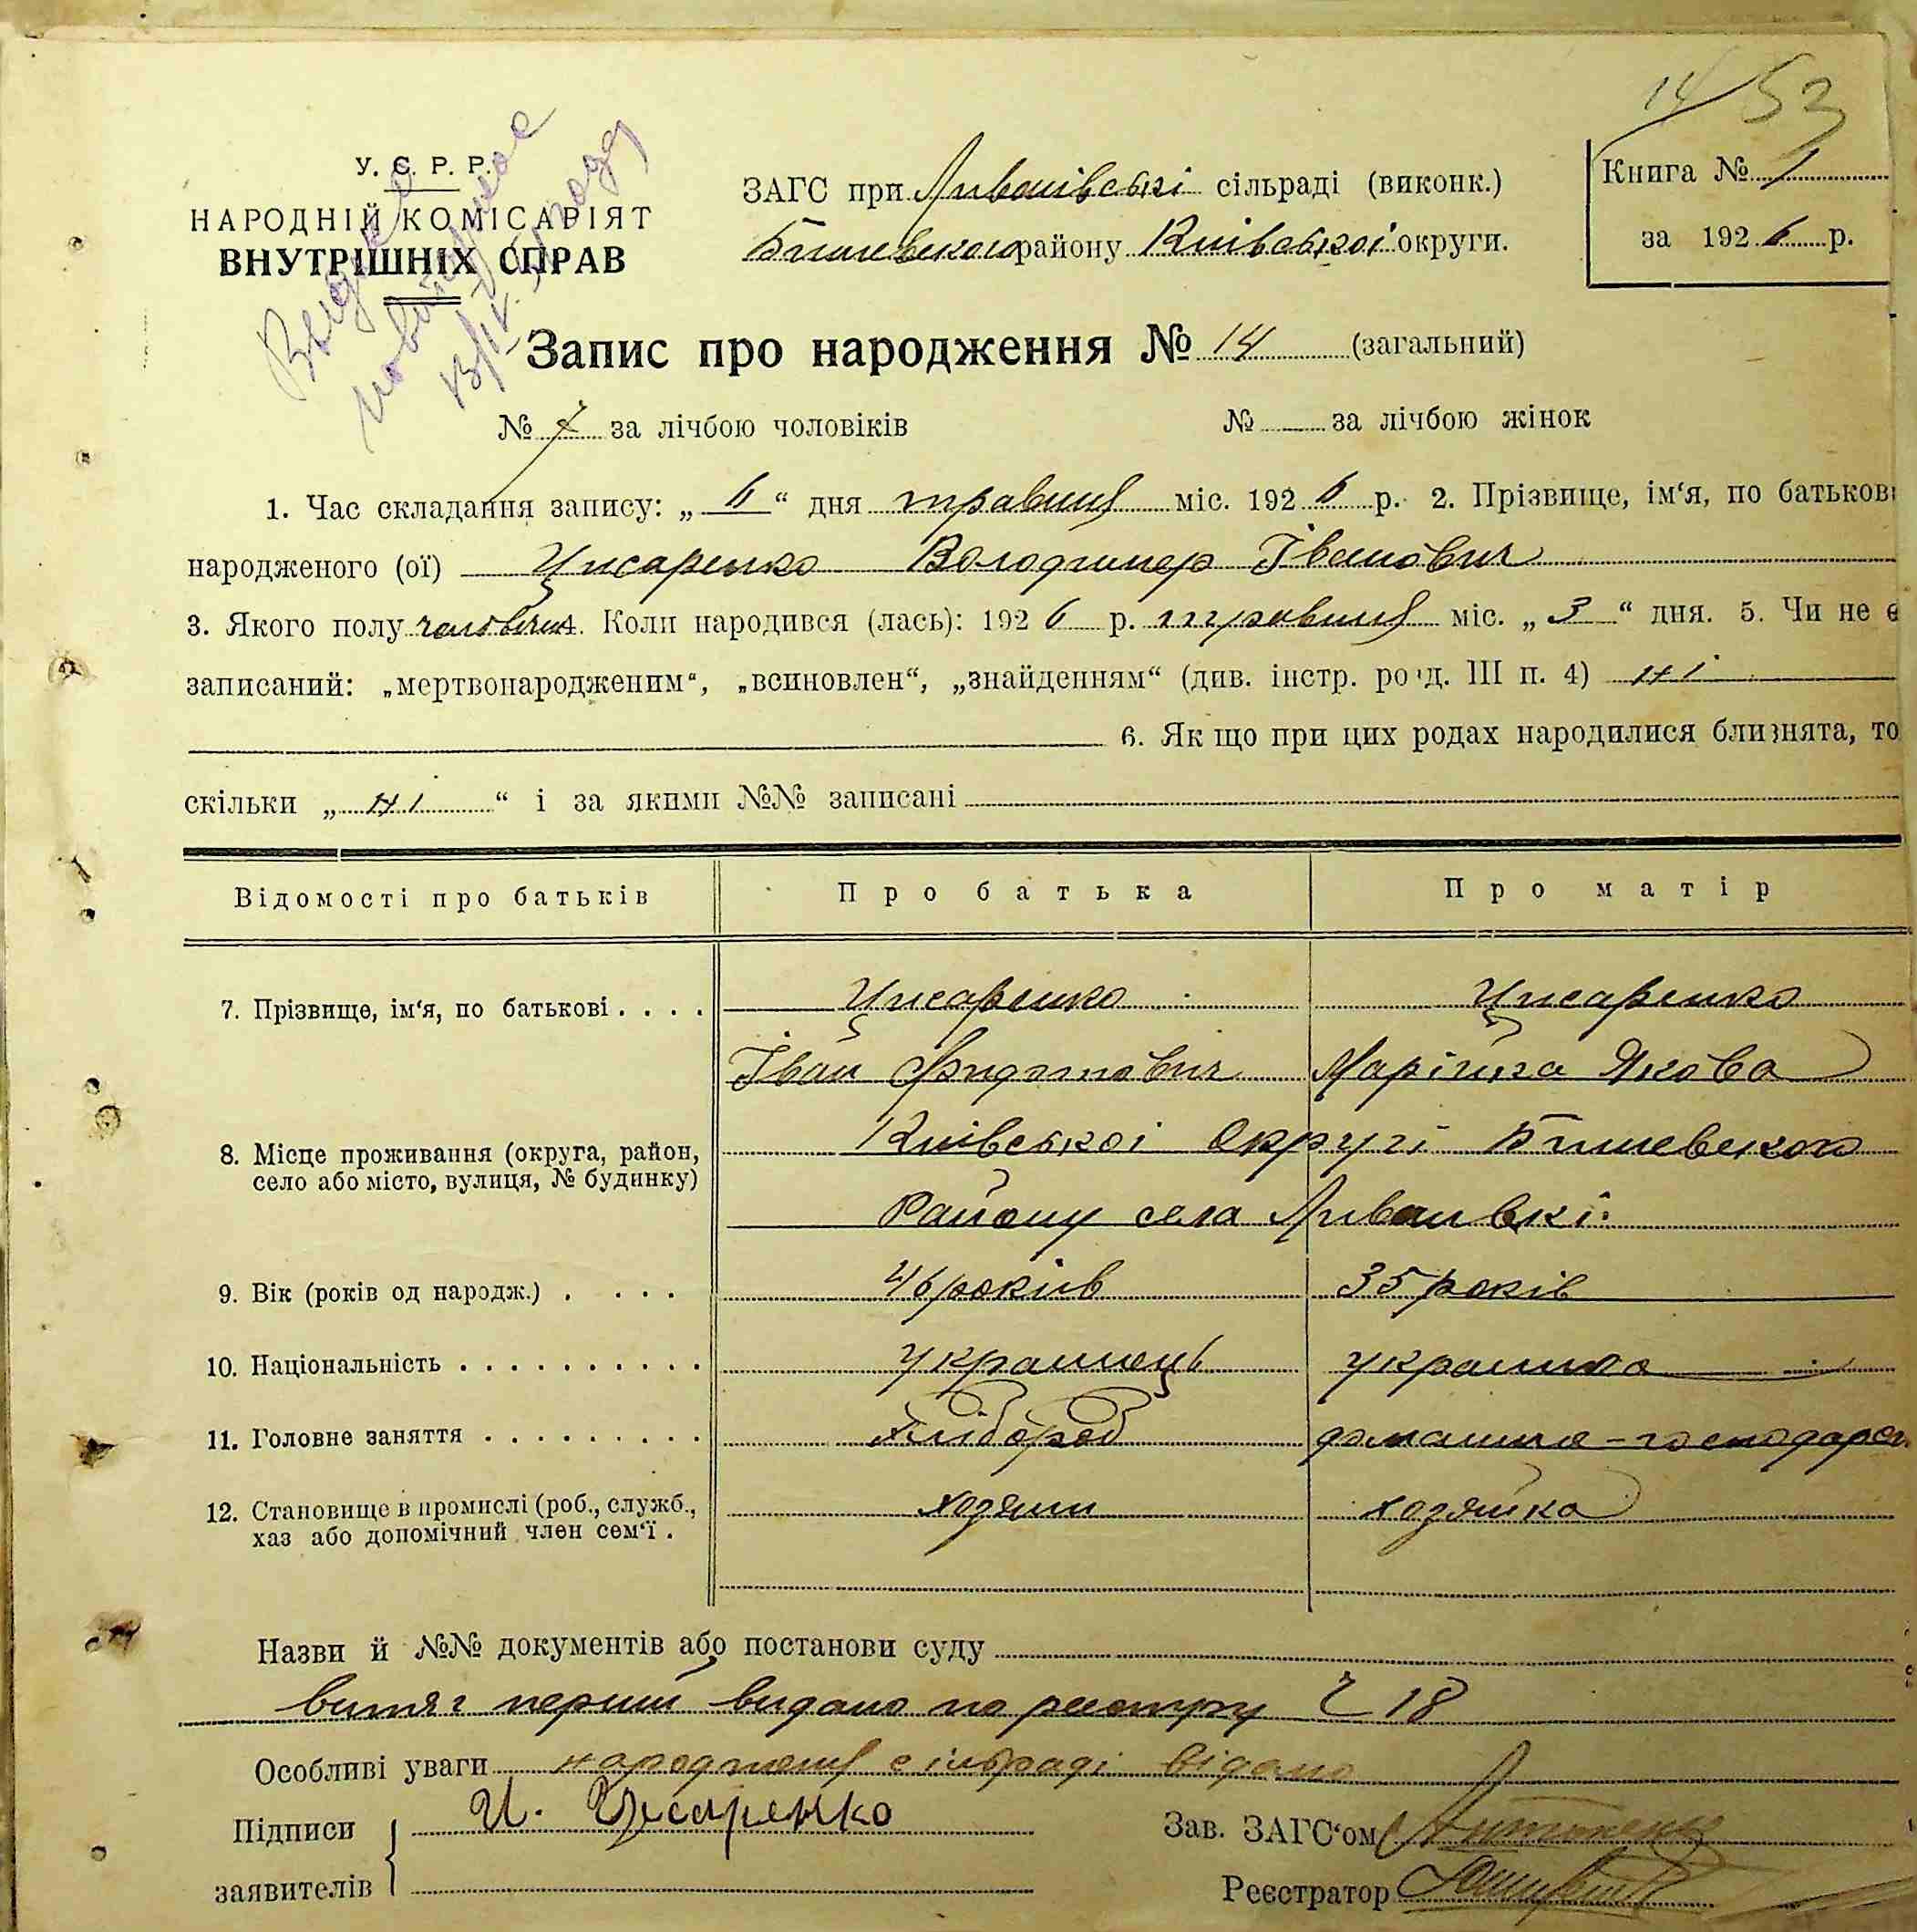 14/53
У. С. Р. Р.
НАРОДНІЙ КОМІСАРІЯТ
ВНУТРІШНІХ СПРАВ
ЗАГС при Лишівські сільраді (виконк.)
Бишевского району Київської округи.
Книга № 1
за 1926 р.
Запис про народження № 14 (загальний)
№ 7 за лічбою чоловіків № — за лічбою жінок
1. Час складання запису: „ 6 “ дня травня міс. 1926 р. 2. Прізвище, ім‘я, по батькові
народженого (ої) Цисаренко Володимер Іванович
3. Якого полу чоловіча. Коли народився (лась): 1926 р. травня міс. „ 3 “ дня. 5. Чи не є
записаний: „мертвонародженим“, „всиновлен“, „знайденням“ (див. інстр. розд. III п. 4) ні
6. Як що при цих родах народилися близнята, то
скільки „ ні “ і за якими №№ записані
Відомості про батьків Про батька Про матір
7. Прізвище, ім‘я, по батькові . . . . Цисаренко Цисаренко
Іван Федотович Марійка Якова
8. Місце проживання (округа, район, село або місто, вулиця, № будинку) Київської Округі Бишевского
Району села
9. Вік (років од народж.) . . . . 46 років 35 років
10. Національність . . . . . . . . . . украінець украінка
11. Головне заняття . . . . . . . . . хлібороб домашнє-господарст
12. Становище в промислі (роб., служб., хаз або допомічний член сем‘ї . хозяин хозяйка
Назви й №№ документів або постанови суду
витяг перший видано по реестру Ч 18
Особливі уваги сільраді видано
Підписи заявителів И. Цисаренко
Зав. ЗАГС‘ом
Реєстратор